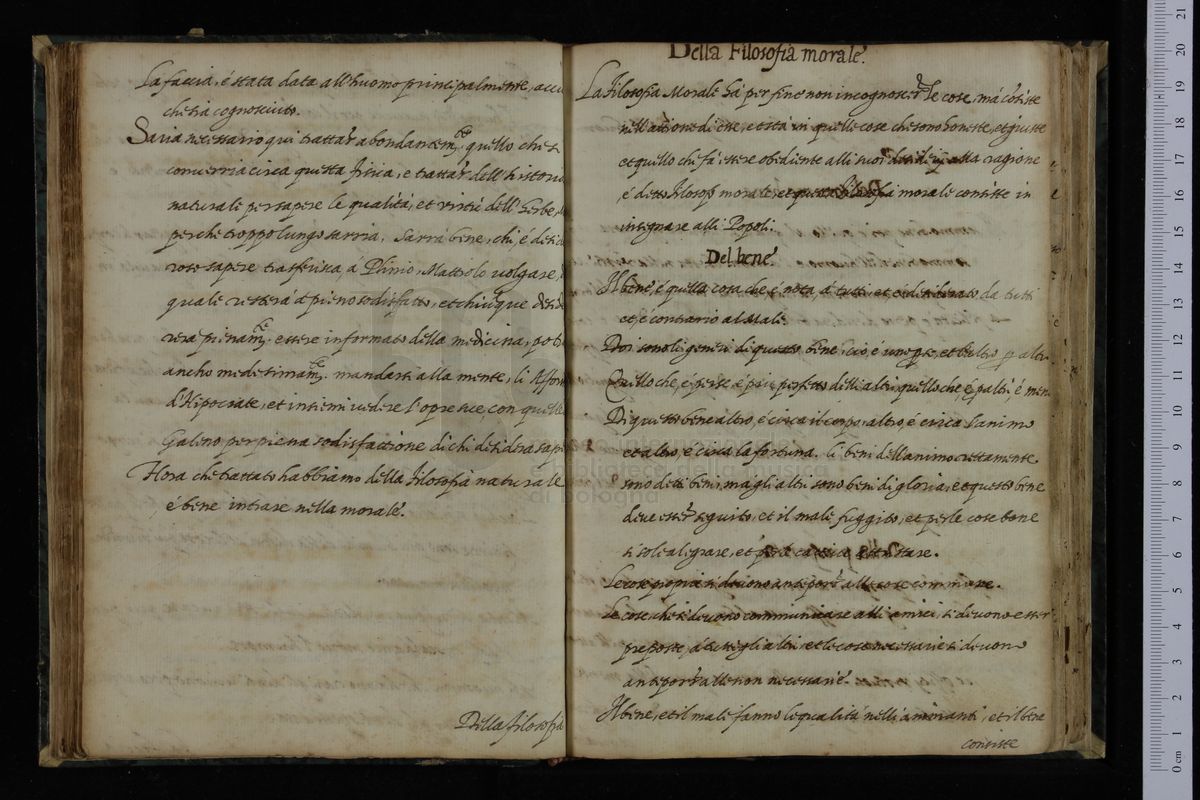 La faccia, é stata data all'huomo principalmente, acciò
che sia cognosciuto.
Saria necessario qui trattar abondantem.te quello che si
converria circa questa fisica, e trattar dell'historia
naturale per sapere le qualitá, et virtù dell'Herbe,
perche troppo lungo sarria. Sarrá bene, chi, é deside
roso sapere trasferirsi á Plinio, Mattiolo volgare,
quale resterá á pieno sodisfatto, et chiunque deside
rera pienam.te essere informato della medicina, potrà
ancho medesimam.te mandarsi alla mente, li Afforis
d'Hipocrate, et insiemi vedere l'opre sue, con quelle
Galeno per piena sodisfactione di chi desidera sape
Hora che trattato habbiamo della filosofia naturale
é bene intrare nella morale.
Della filosofia
Della Filosofia morale.
La filosofia Morale há per fine non in cognoscer le cose, má consiste
nell'attione di esse, et stá in quelle cose che sono honeste, et giuste
et quello chi fá essere obediente alli suoi desiderij alla ragione
é detto filosofo morale, et questa filosofia morale consiste in
insegnare alli Popoli.
Del bene
Il bene, é quella cosa che é nota, á tutti, et é desiderato da tutti
et é contrario al Male
Doi sono li generi di questo bene, cio, é uno p se, et l'altro p altri
Quello che, é per se é piú perfetto delli altri, quello che, é p altri é men
Di questo bene altro, é circa il corpo, altro, é circa l'animo
et altro, é circa la fortuna. li beni dell'animo rettamente
sono detti beni, ma gli altri sono beni di gloria, et questo bene
deve esser seguito, et il male fuggito, et per le cose bone
si sole alegrare, et per le cattive attristare.
Le cose proprie si devono anteporr alle cose commune.
Le cose che si devono communicare alli amici, si devono esser
preposte, á tutti gli altri, et le cose necessarie si devono
anteporr alle non necessarie.
Il bene, et il male fanno le qualitá nelli amoranti, et il bene
consiste